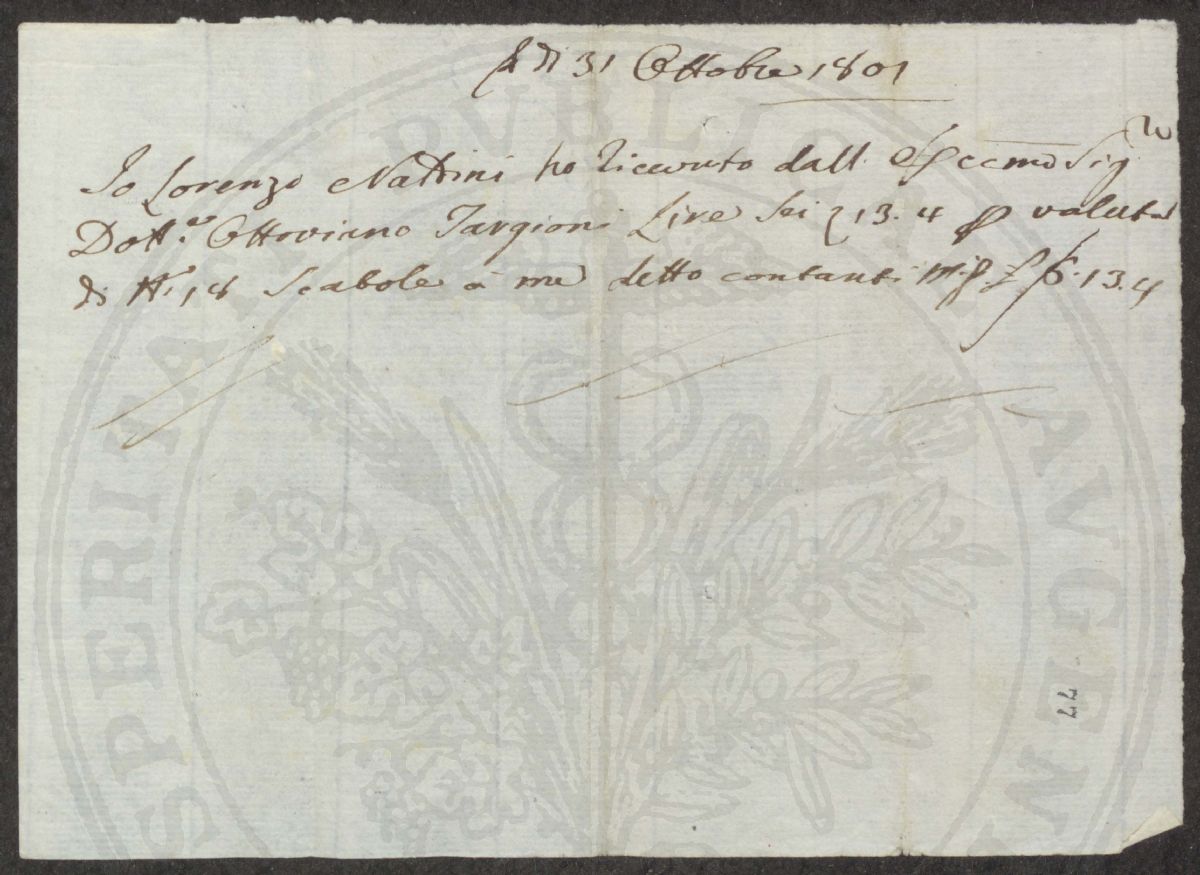 A dì 31 Ottobre 1801
Io Lorenzo Nattini ho Ricevuto dall Eccmo Sigre
Dotte. Ottoviano Targioni Lire Sei 13.4 p valuta
di N. 18 Scatole à me detto contanti £ 6.13.4
77